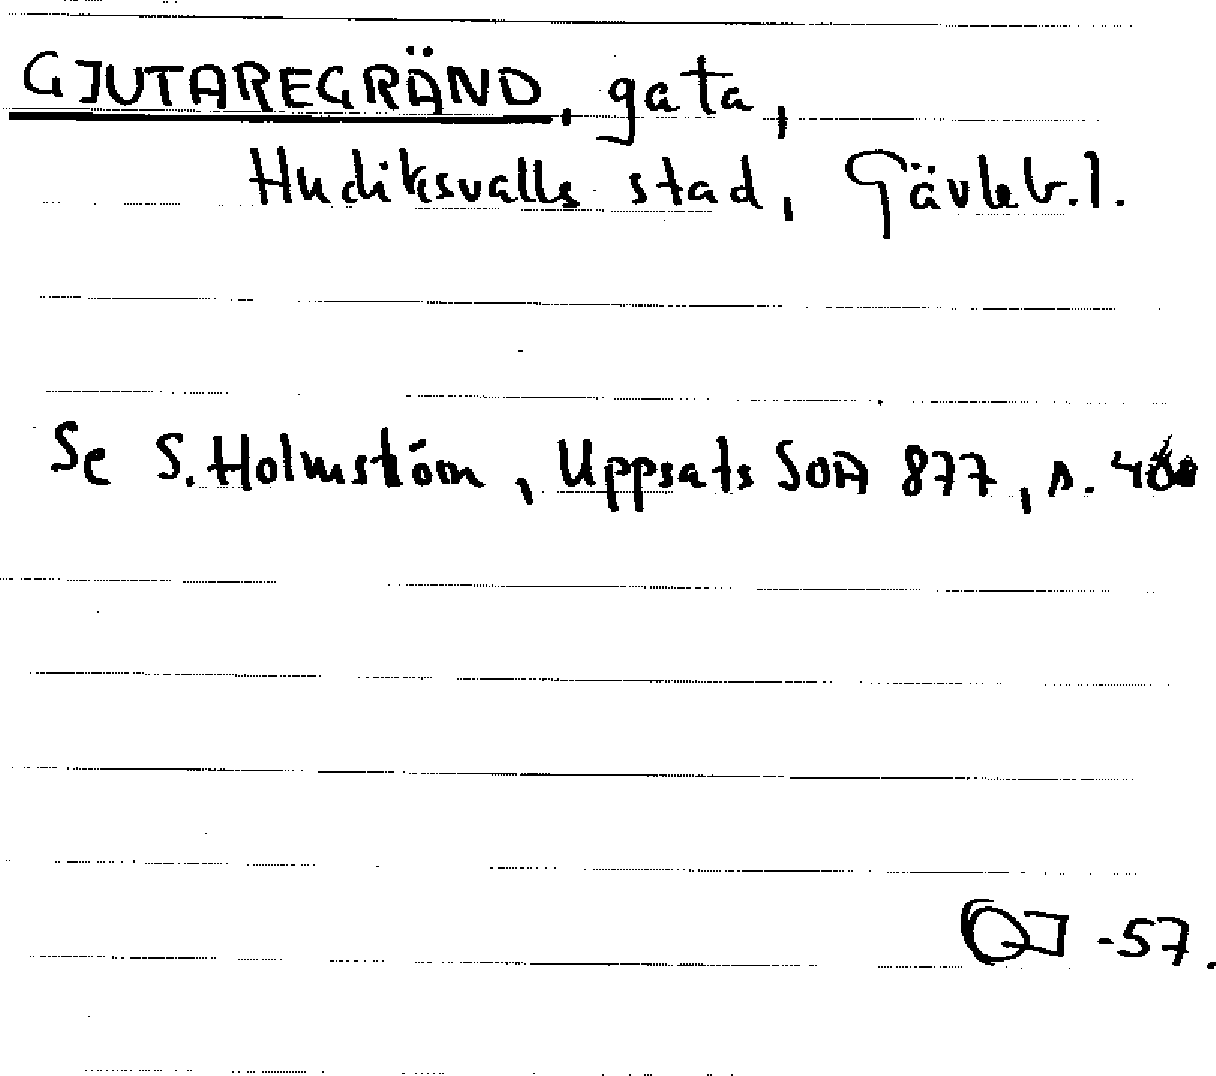 GJUTAREGRÄND, gata,
Hudiksvalls stad, Gävleb.l.
Se S. Holmström, Uppsats SOA 877, s.
-57.